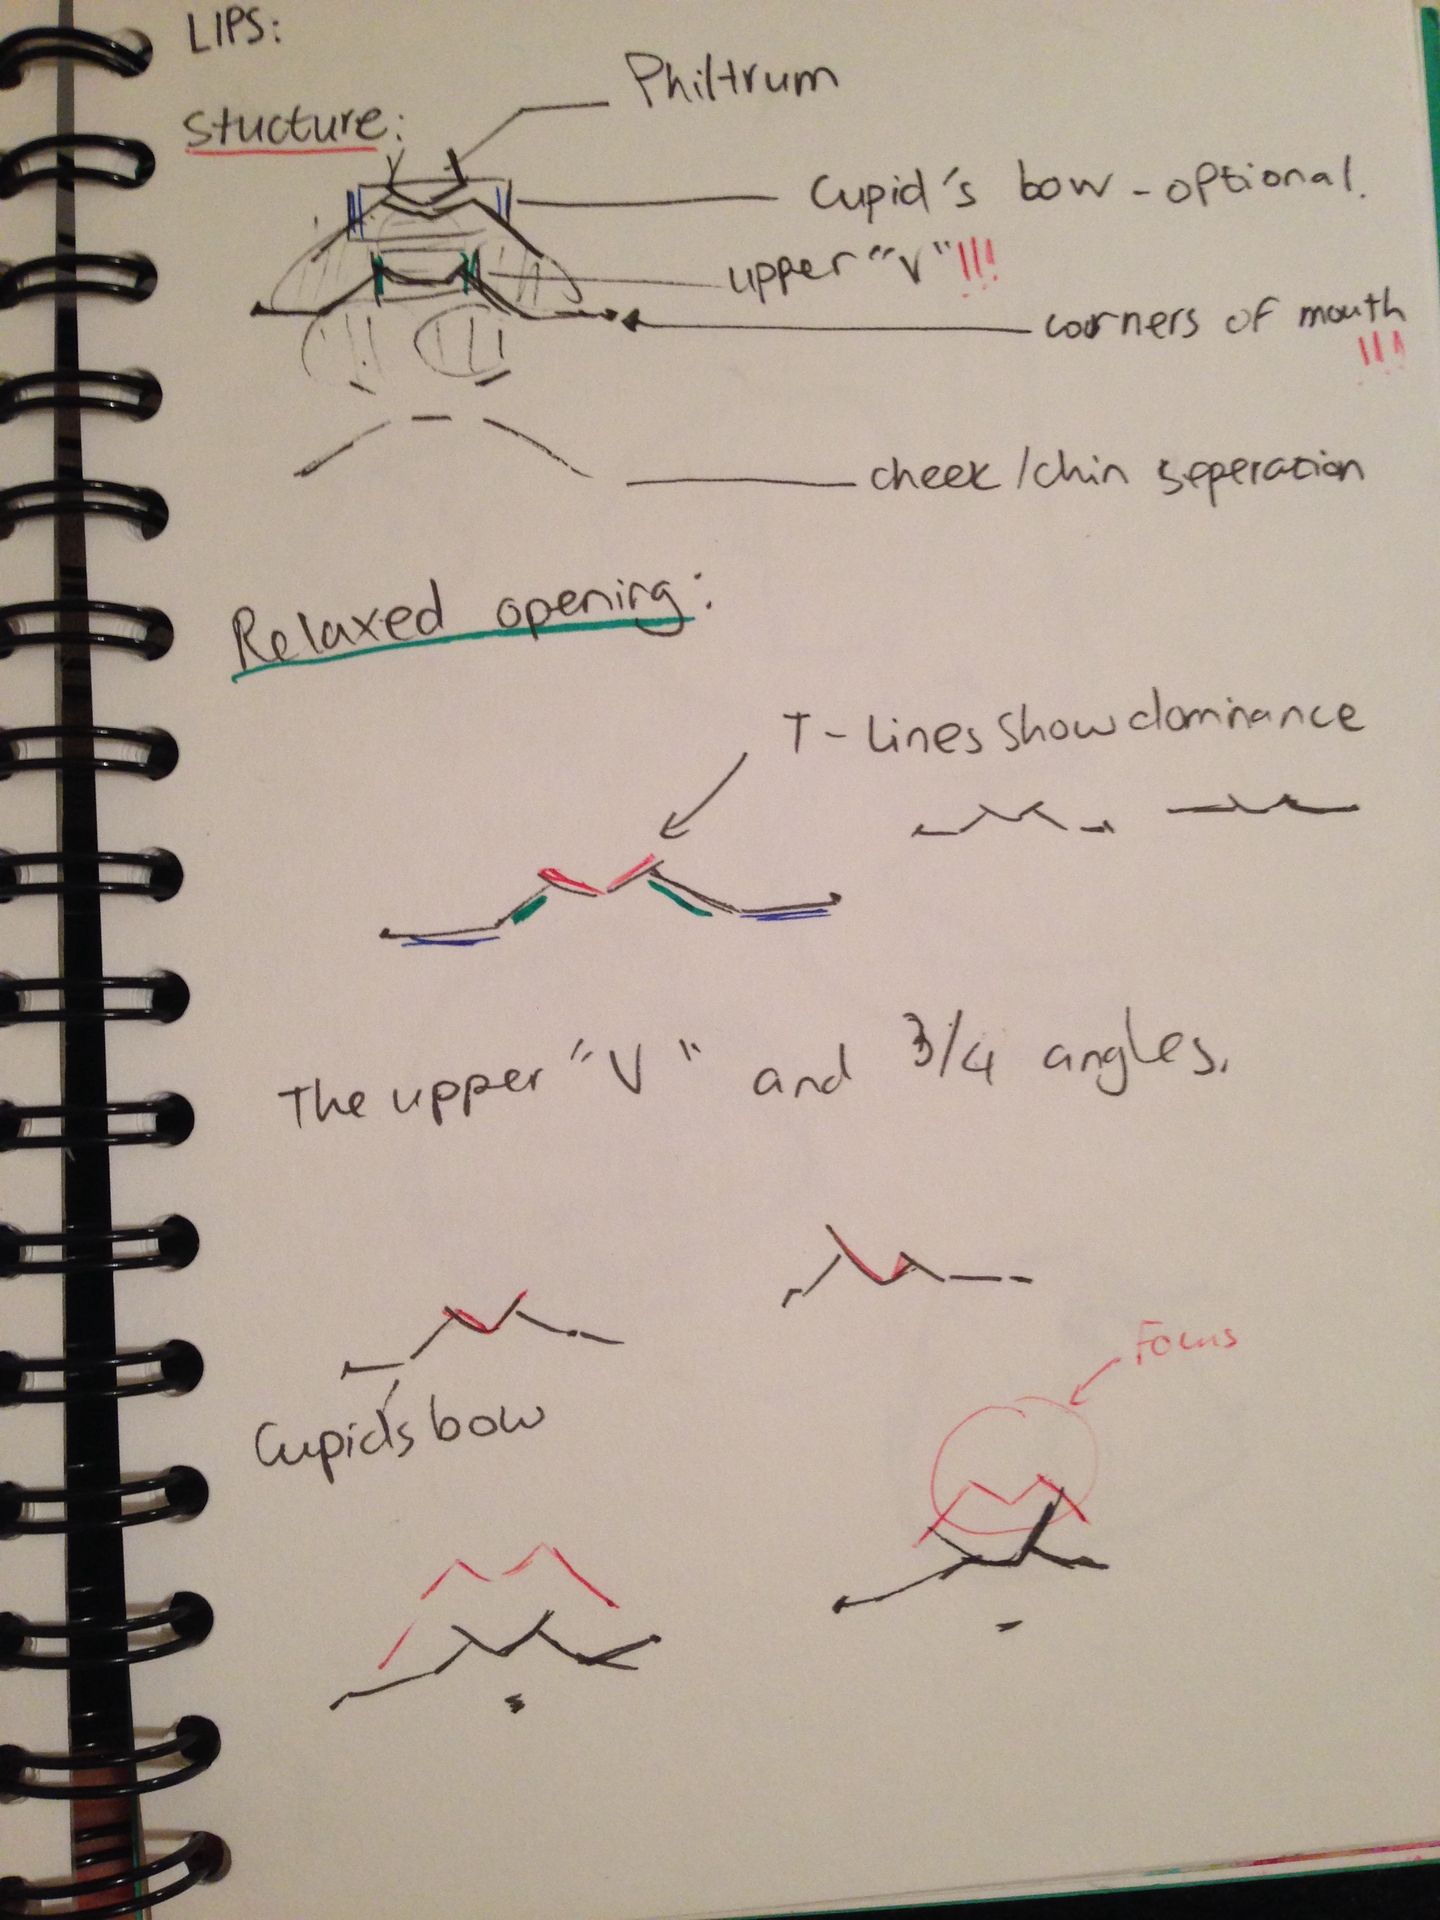 LIPS:
Philtrum
Stucture:
Cupid's bow - optional.
upper "V" !!!
corners of mouth
!!!
cheek/chin seperation
Relaxed opening:
T-Lines show dominance
The upper "V" and 3/4 angles.
Focus
Cupids bow